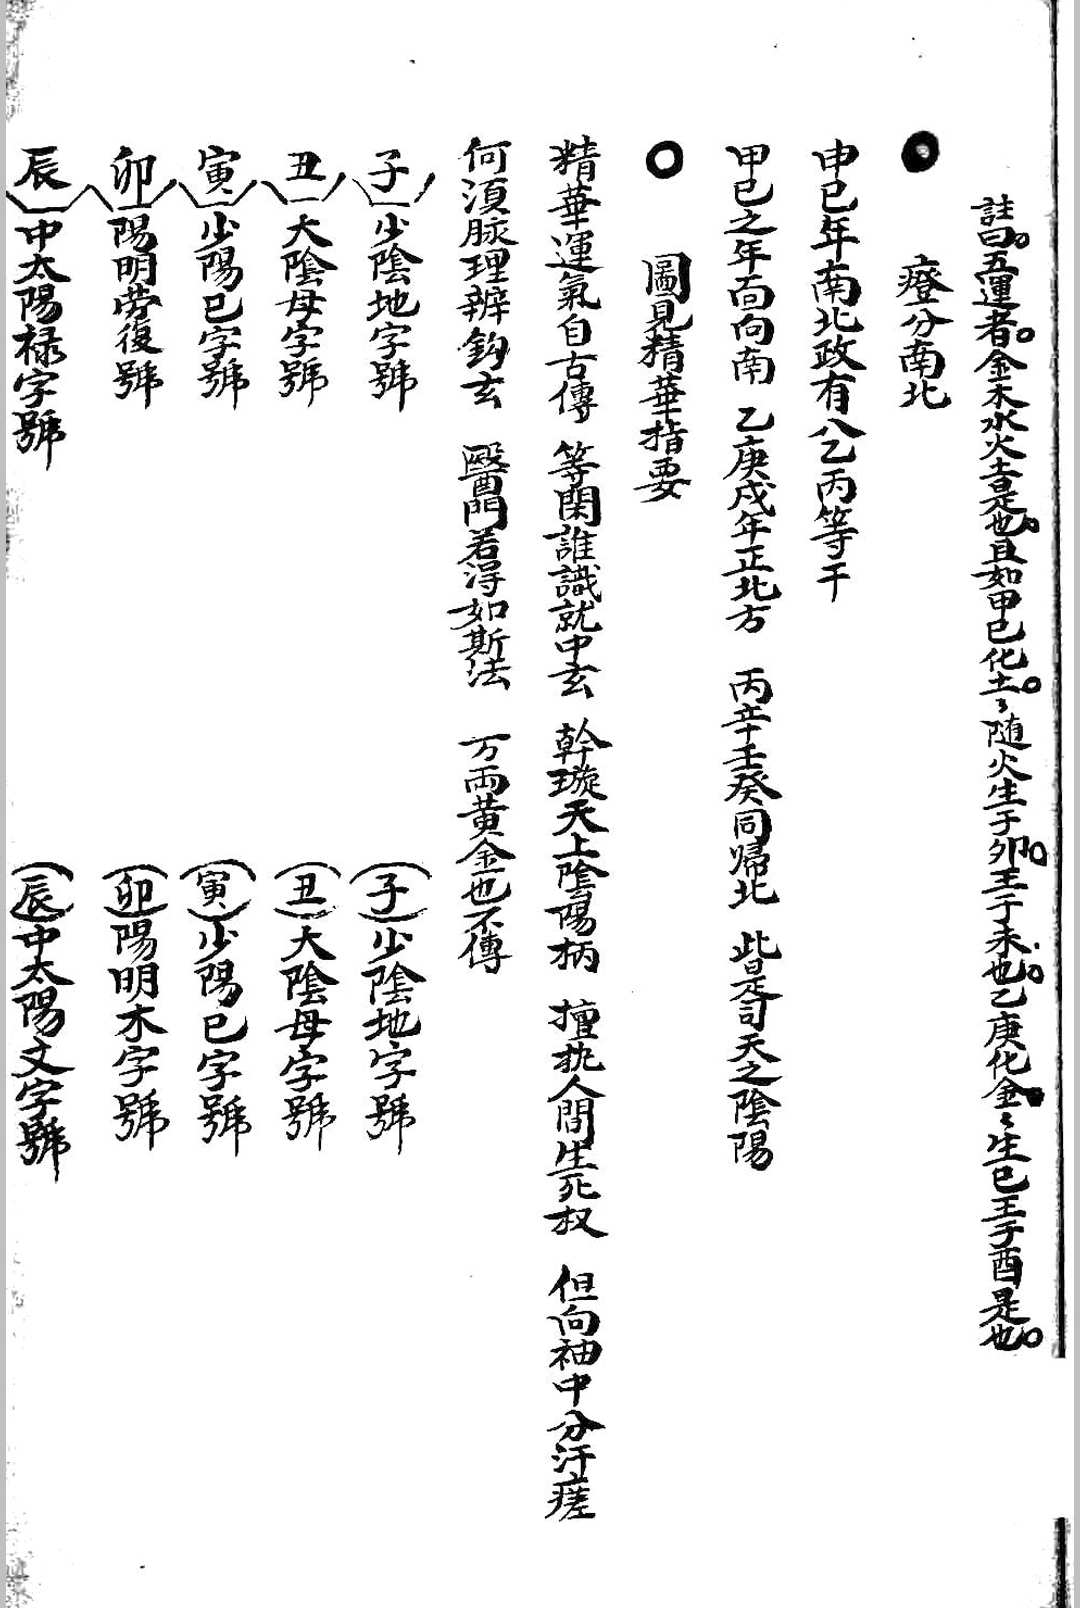 註曰五運者金木水火土是也且如甲巳化土〻随火生于卯王于未也乙庚化金〻生巳王于酉是也
證分南北
申巳年南北政有八乙丙等干
甲巳之年面向南 乙庚戌年正北方 丙辛壬癸同歸北 此是司天之陰陽
圖見精華指要
精華運氣自古傳 等閑誰識就中玄 幹璇天上陰陽柄 擅执人間生死权 但向袖中分汗瘥
何須脉理辨鈎玄 醫門若得如斯法 万両黄金也不傳
子 少陰地字號 子 少陰地字號
丑 大陰母字號 丑 大陰母字號
寅 少陽巳字號 寅 少陽巳字號
卯 陽明劳復號 卯 陽明木字號
辰 中太陽禄字號 辰 中太陽文字號